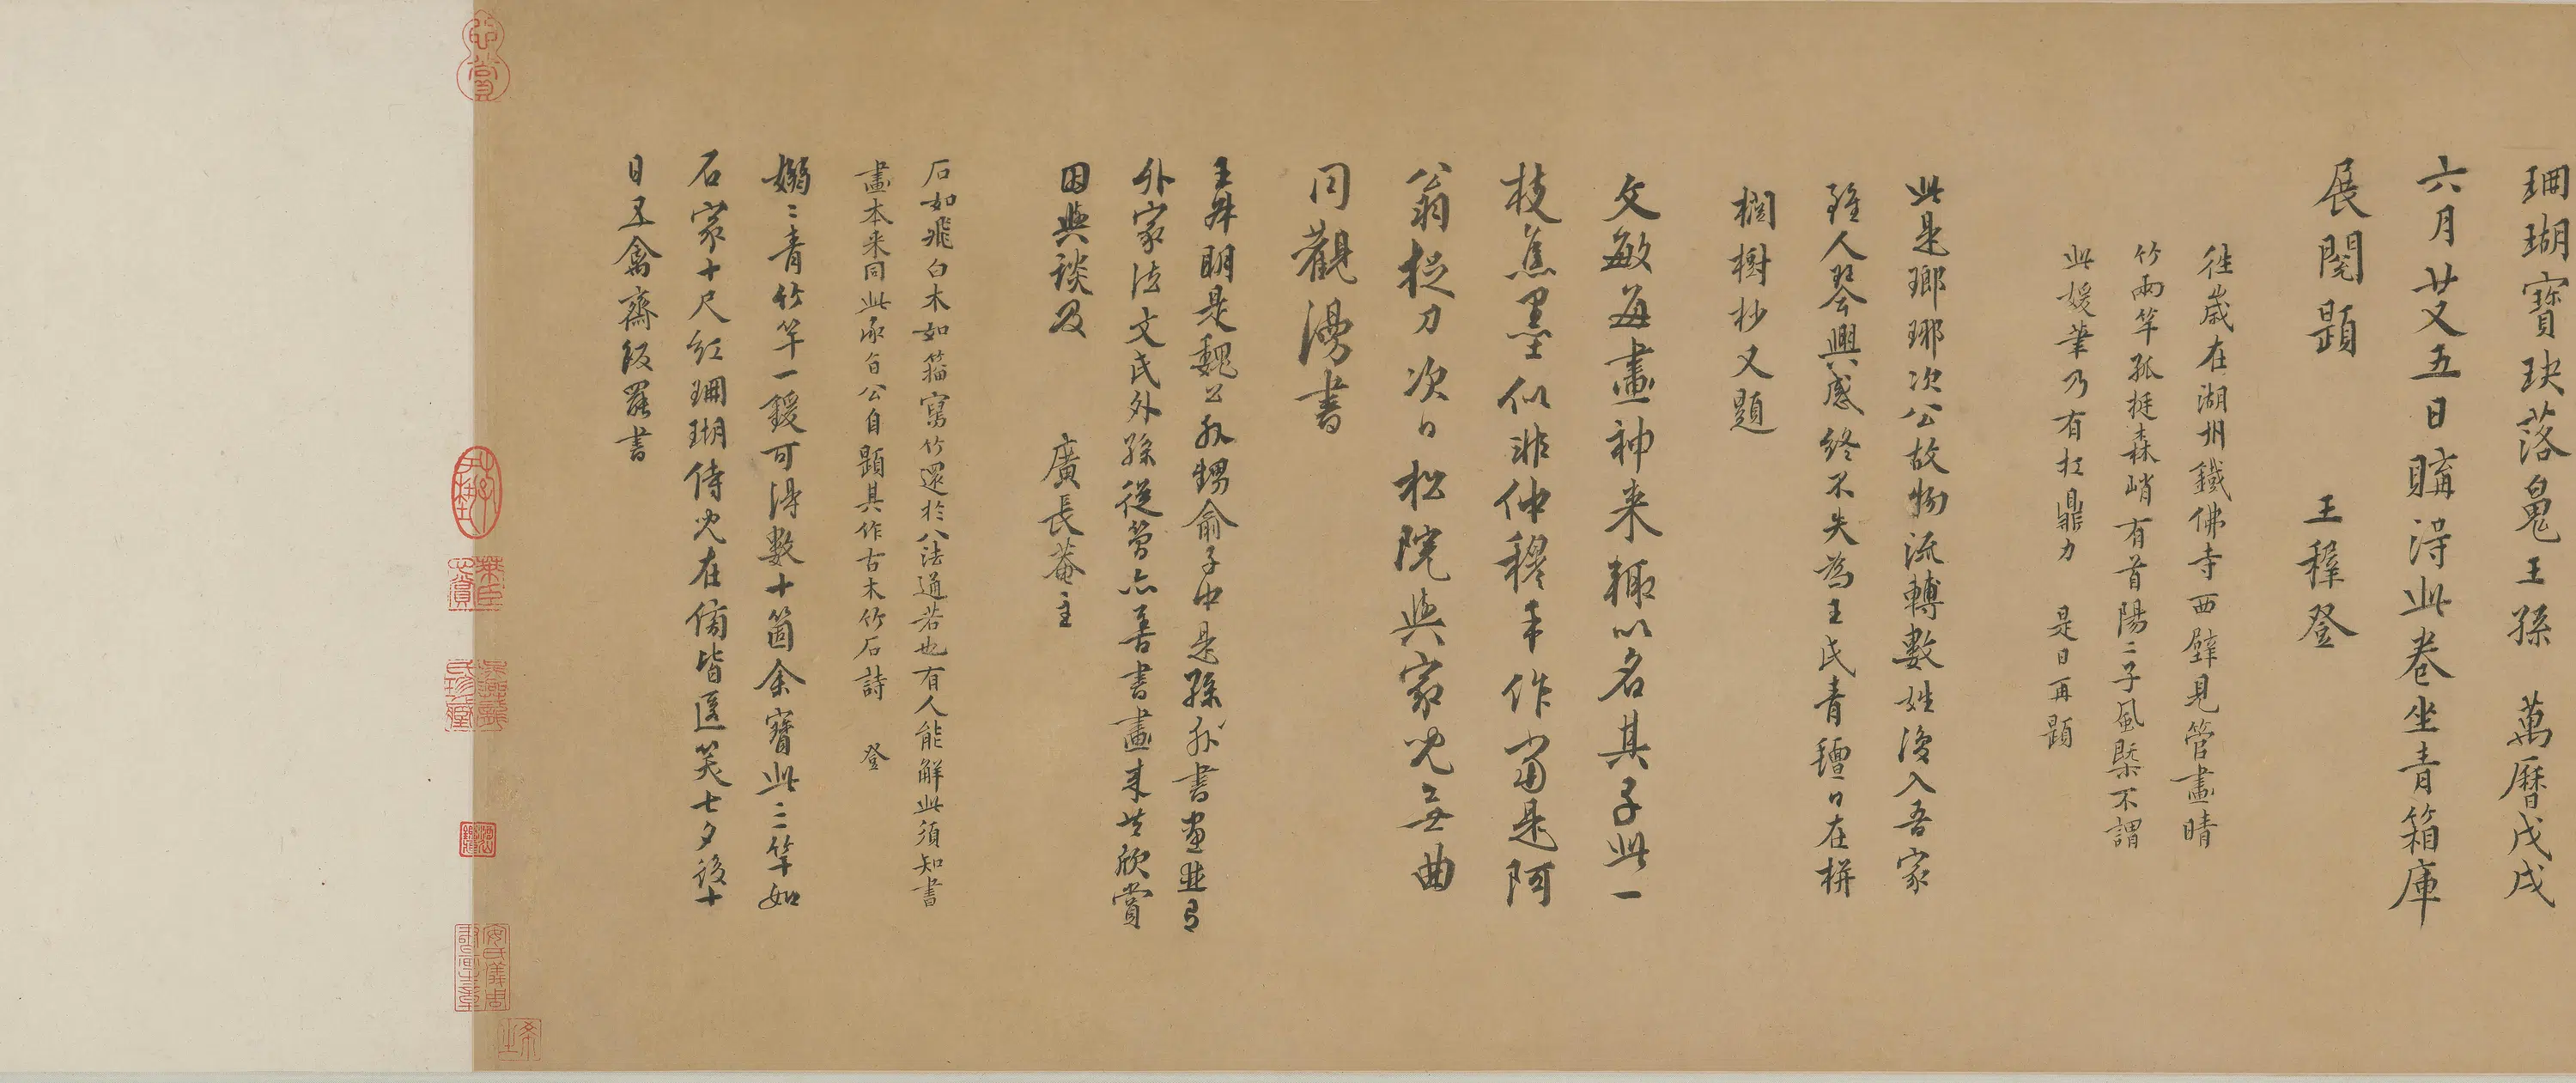 珊瑚寶玦落鬼王孫　萬曆戊戌
六月廿又五日購得此卷坐青箱庫
展閱題　王穉登
往歲在湖州鐵佛寺西壁見管畫晴
竹兩竿孤挺森峭有首陽二子風槩不謂
此媛筆乃有扛鼎力　是日再題
此是瑯琊次公故物流轉數姓復入吾家
雖人琴興感終不失為王氏青氈日在栟
櫚樹杪又題
文敏每畫神来輒以名其子此一
枝蕉墨似非仲穆手作當是阿
翁捉刀次日松院與家兄無曲
同觀漫書
王叔明是魏公外甥俞子中是孫外書畫並有
外家法文氏外孫從簡亦善書畫來共欣賞
因與談及　廣長菴主
石如飛白木如籀寫竹還於八法通若也有人能解此須知書
畫本来同此承旨公自題其作古木竹石詩　登
嫋嫋青竹竿一鍰可得數十箇余寶此二竿如
石家十尺紅珊瑚侍兒在傍皆匿笑七夕後十
日五禽齋飯罷書
心賞
棠臣心賞
安氏儀周書畫之章